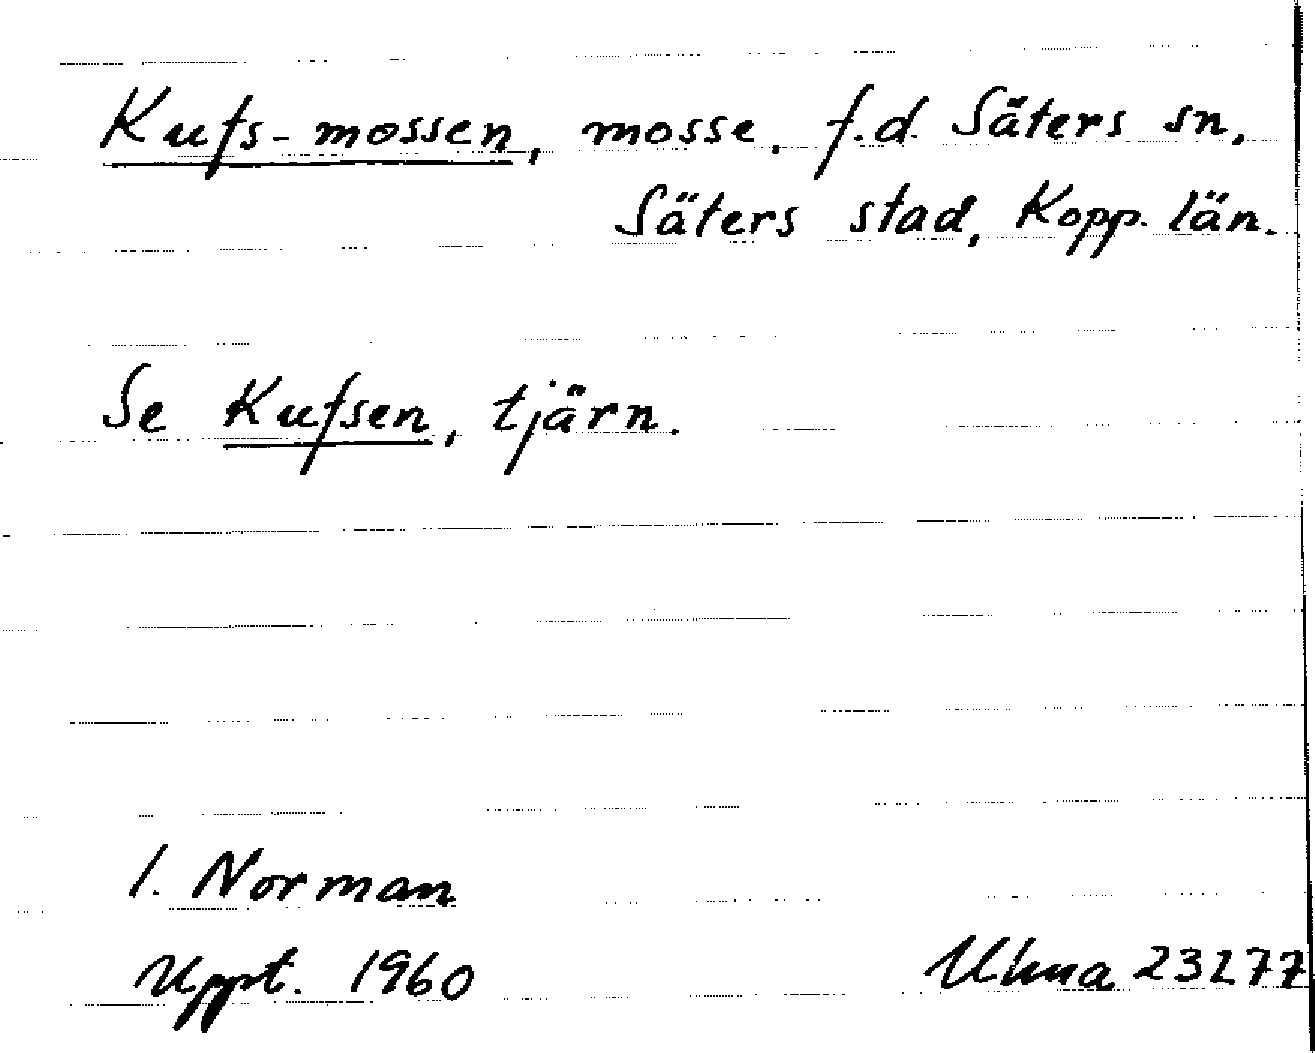 Kufs-mossen, mosse, f.d. Säters sn,
Säters stad, Kopp. län.
Se Kufsen, tjärn.
I. Norman
Uppt. 1960
Uhna 23277